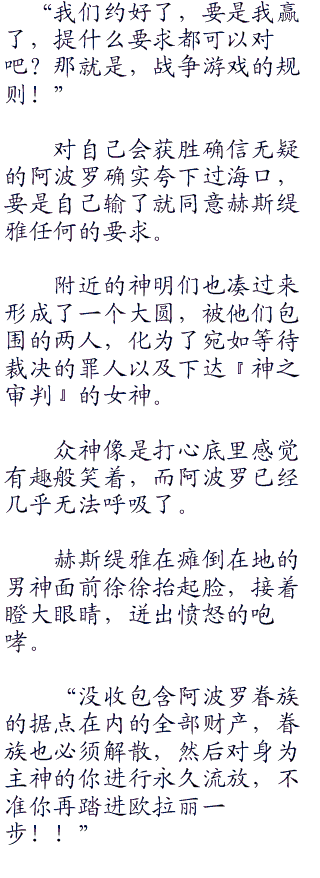 “我们约好了，要是我赢
了，提什么要求都可以对
吧？那就是，战争游戏的规
则！”
对自己会获胜确信无疑
的阿波罗确实夸下过海口，
要是自己输了就同意赫斯缇
雅任何的要求。
附近的神明们也凑过来
形成了一个大圆，被他们包
围的两人，化为了宛如等待
裁决的罪人以及下达『神之
审判』的女神。
众神像是打心底里感觉
有趣般笑着，而阿波罗已经
几乎无法呼吸了。
赫斯缇雅在瘫倒在地的
男神面前徐徐抬起脸，接着
瞪大眼睛，迸出愤怒的咆
哮。
“没收包含阿波罗眷族
的据点在内的全部财产，眷
族也必须解散，然后对身为
主神的你进行永久流放，不
准你再踏进欧拉丽一
步！！”